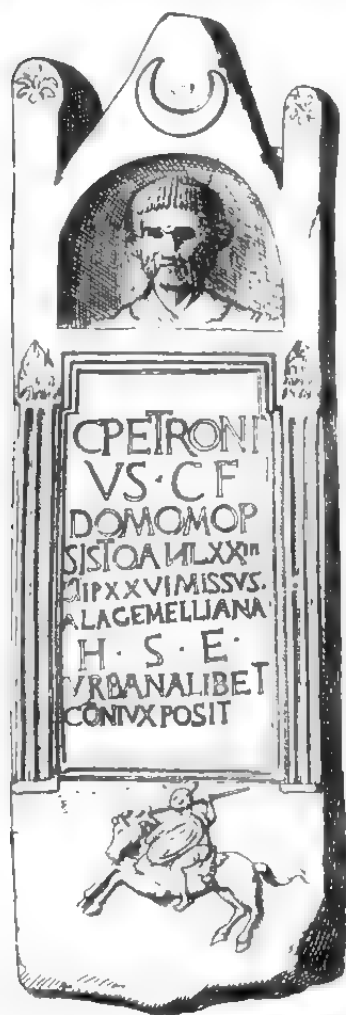 CPETRONI
VS · C F
DOMOMOP
SISTOANLXXIII
TIPXXVIMISSVS.
ALAGEMELLIANA
H · S · E ·
VRBANALIBET
CONIVXPOSIT